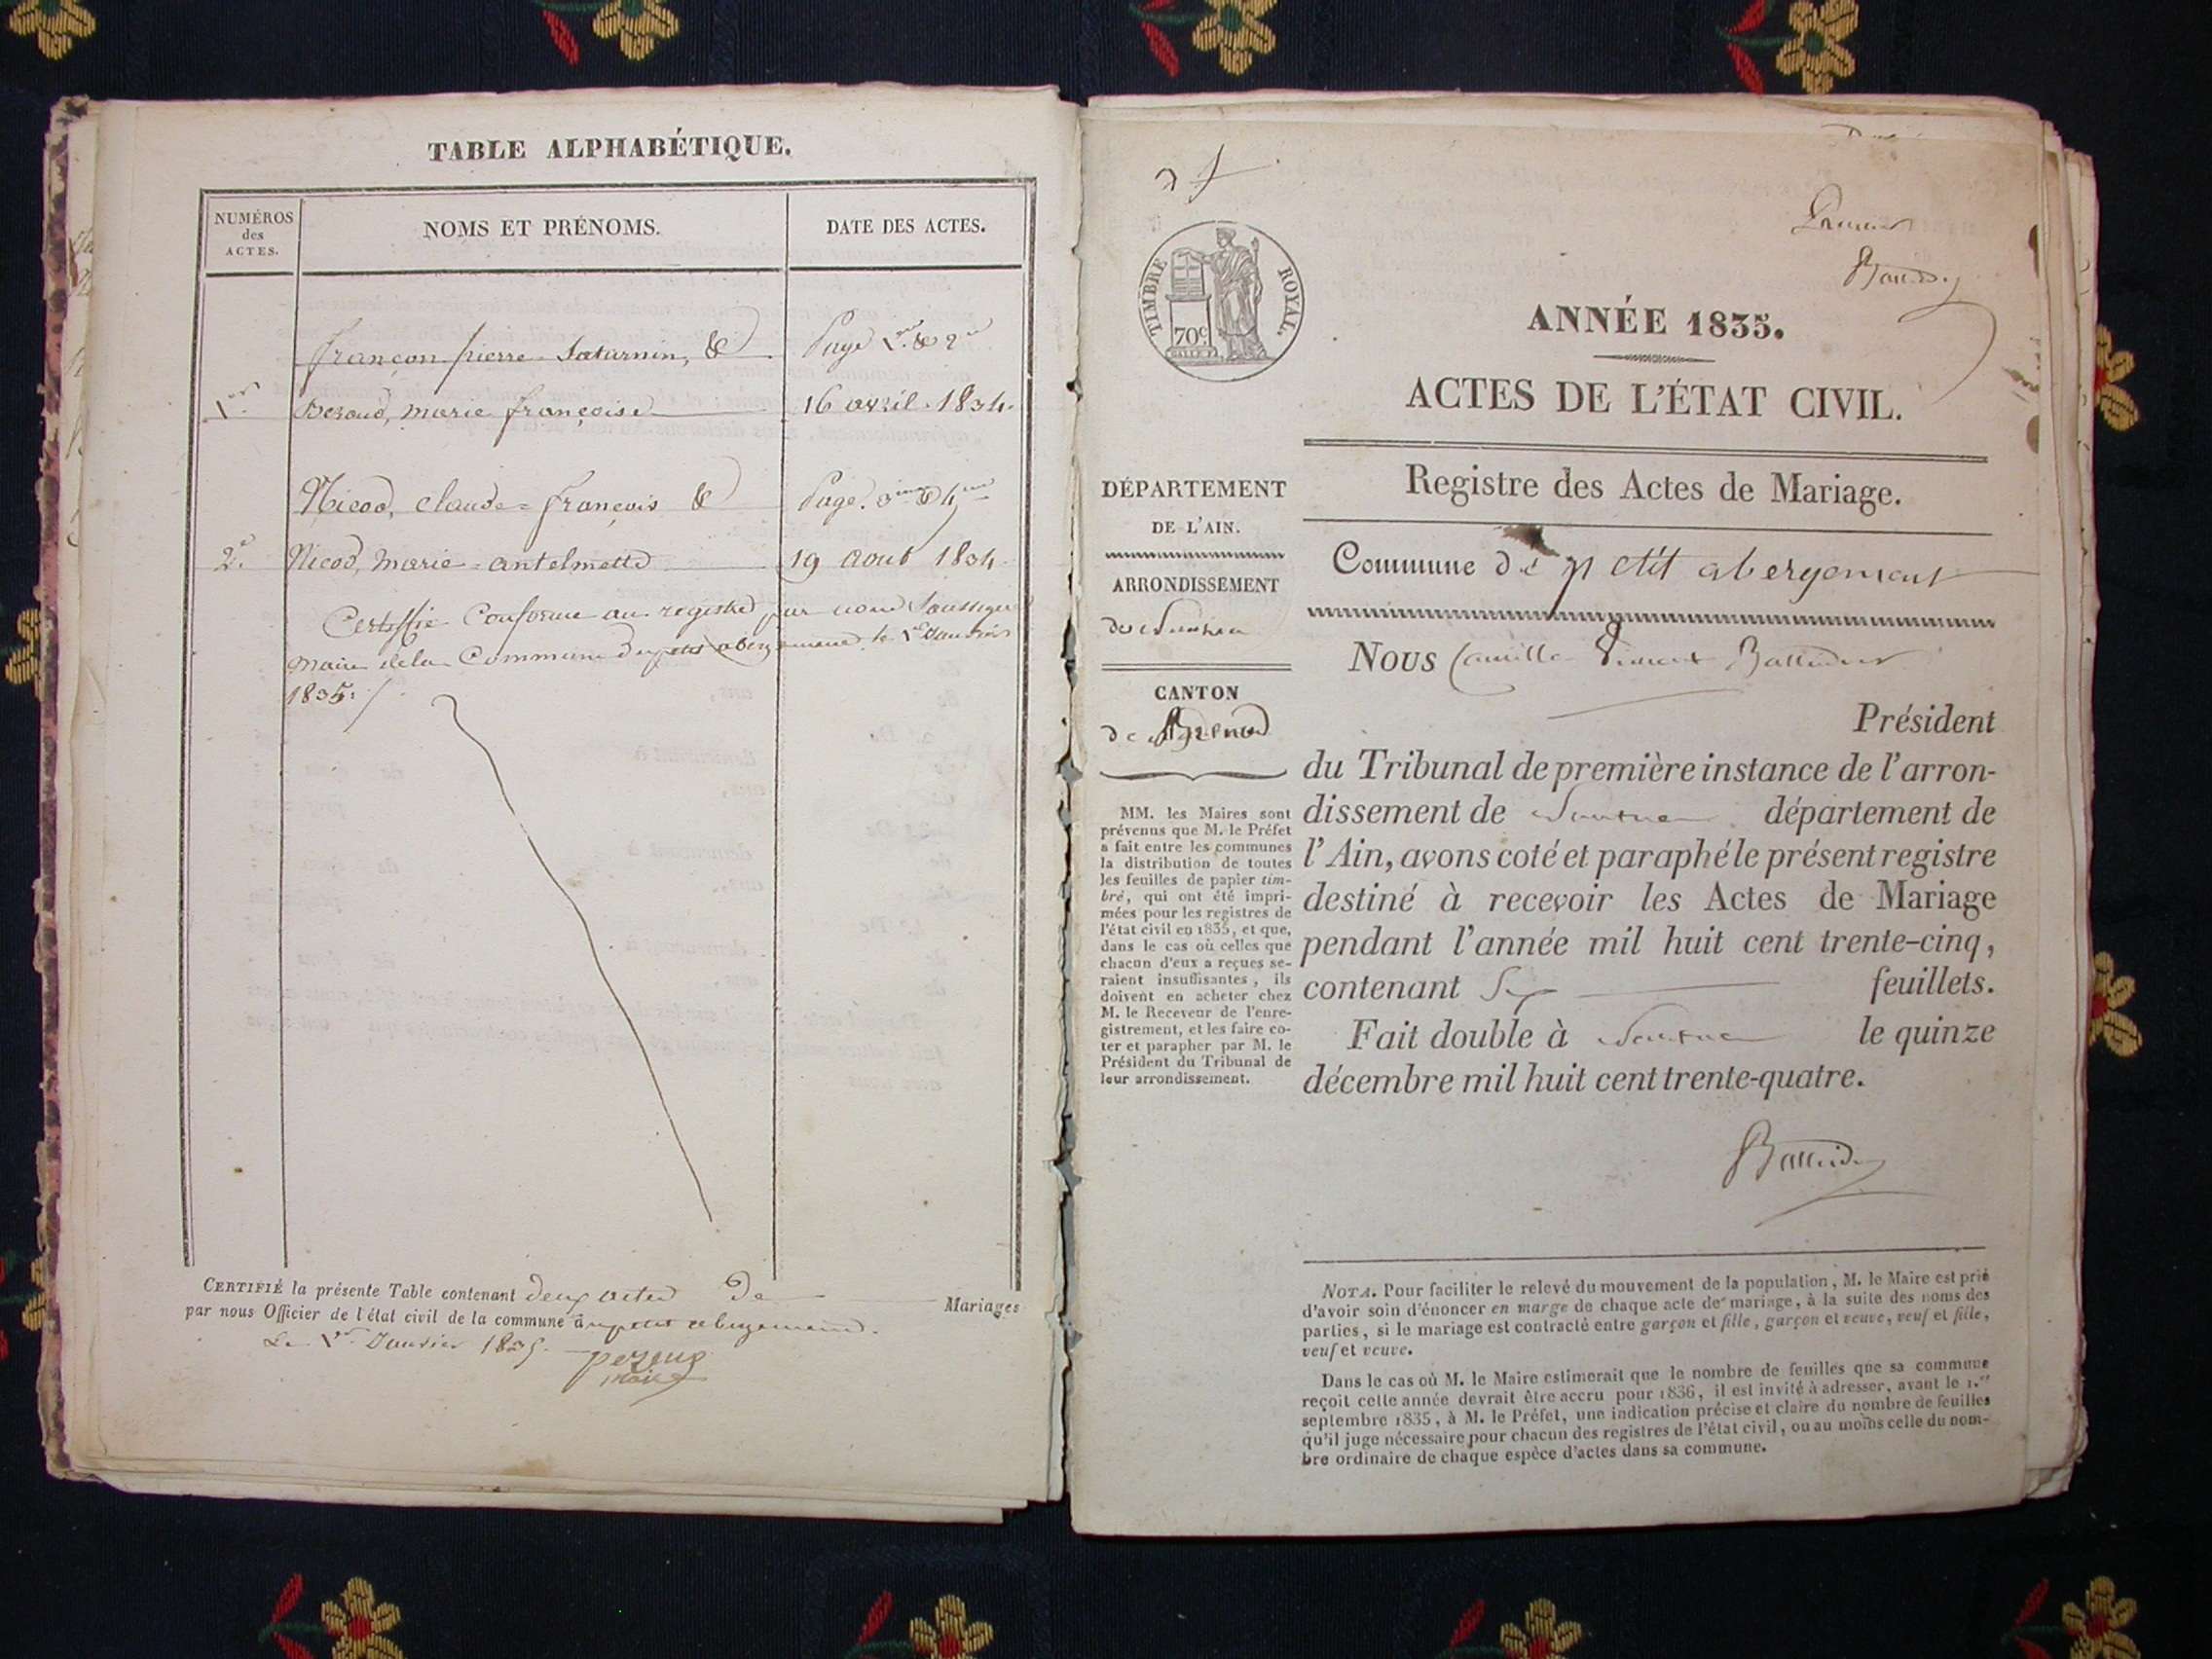 TABLE ALPHABÉTIQUE.
NUMÉROS
des
ACTES.
NOMS ET PRÉNOMS.
DATE DES ACTES.
françon pierre Saturnin, &
Page 1.re & 2me
1er
Bezaud, marie françoise
16 avril 1834.
Nicod, claude=françois &
Page. 3me & 4me
2e
Nicod, marie=antelmette
19 aout 1834.
Certiffié Conforme au registre par nous Soussigné
maire de la Commune du petit abergement le 1er Janvier
1835.
CERTIFIÉ la présente Table contenant deux actes de Mariages
par nous Officier de l'état civil de la commune du petit abergement.
Le 1er Janvier 1835.
maire
Premier
TIMBRE ROYAL.
70c
ANNÉE 1835.
ACTES DE L'ÉTAT CIVIL.
Registre des Actes de Mariage.
DÉPARTEMENT
DE L'AIN.
ARRONDISSEMENT
de Nantua
CANTON
de Brénod
MM. les Maires sont
prévenus que M. le Préfet
a fait entre les communes
la distribution de toutes
les feuilles de papier tim-
bré, qui ont été impri-
mées pour les registres de
l'état civil en 1835, et que,
dans le cas où celles que
chacun d'eux a reçues se-
raient insuffisantes, ils
doivent en acheter chez
M. le Receveur de l'enre-
gistrement, et les faire co-
ter et parapher par M. le
Président du Tribunal de
leur arrondissement.
Commune de petit abergement
Nous Camille Vincent
Président
du Tribunal de première instance de l'arron-
dissement de Nantua département de
l'Ain, avons coté et paraphé le présent registre
destiné à recevoir les Actes de Mariage
pendant l'année mil huit cent trente-cinq,
contenant Six feuillets.
Fait double à Nantua le quinze
décembre mil huit cent trente-quatre.
NOTA. Pour faciliter le relevé du mouvement de la population, M. le Maire est prié
d'avoir soin d'énoncer en marge de chaque acte de mariage, à la suite des noms des
parties, si le mariage est contracté entre garçon et fille, garçon et veuve, veuf et fille,
veuf et veuve.
Dans le cas où M. le Maire estimerait que le nombre de feuilles que sa commune
reçoit cette année devrait être accru pour 1836, il est invité à adresser, avant le 1.er
septembre 1835, à M. le Préfet, une indication précise et claire du nombre de feuilles
qu'il juge nécessaire pour chacun des registres de l'état civil, ou au moins celle du nom-
bre ordinaire de chaque espèce d'actes dans sa commune.